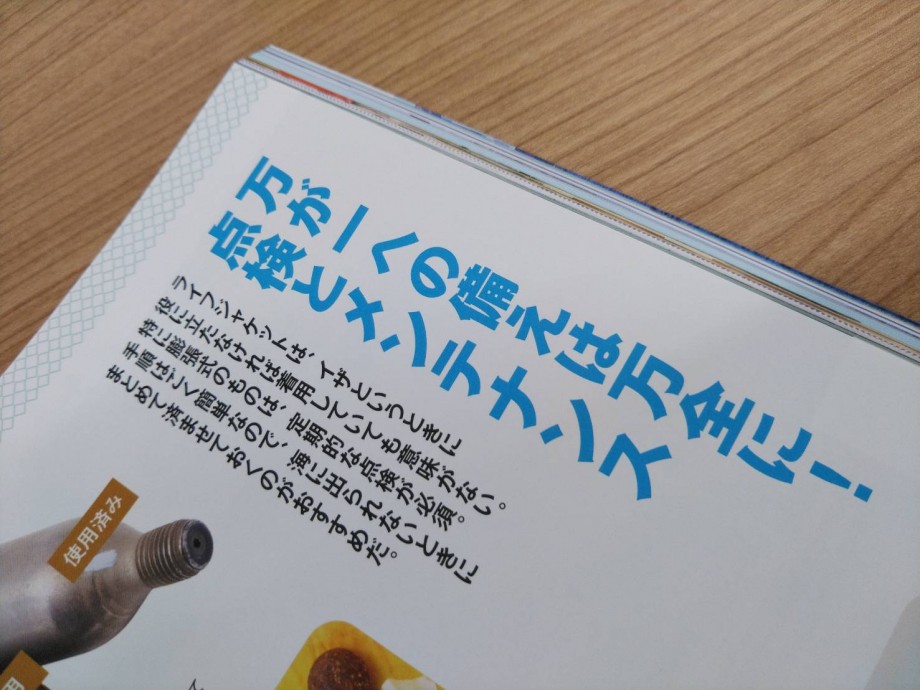 万が一への備えは万全に!
点検とメンテナンス
ライフジャケットは、イザというときに
役に立たなければ着用していても意味がない。
特に膨張式のものは、定期的な点検が必須。
手順はごく簡単なので、海に出られないときに
まとめて済ませておくのがおすすめだ。
使用済み